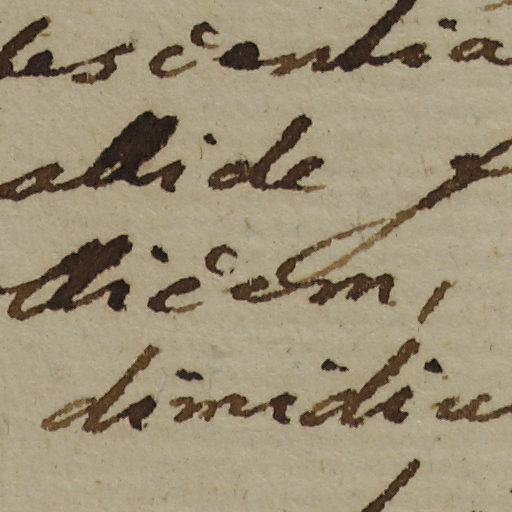 escentia
allide
llicem,
dimidiu